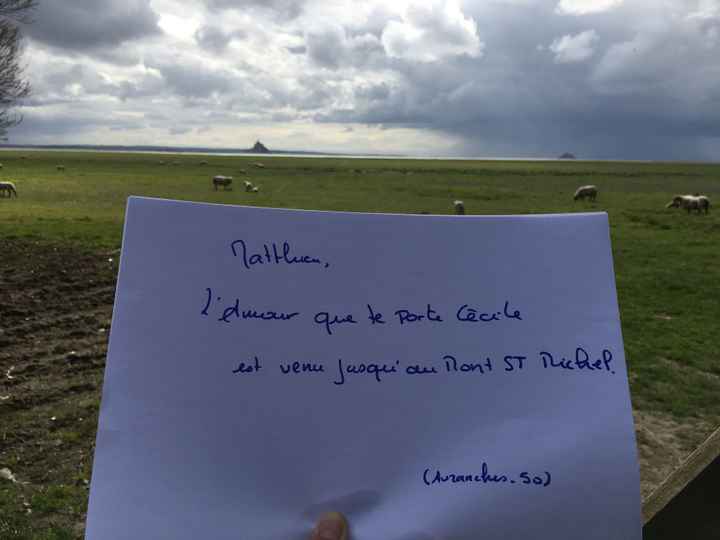 Matthieu,
L'Amour que te porte Cécile
est venu jusqu'au Mont ST Michel.
(Avranches. 50)